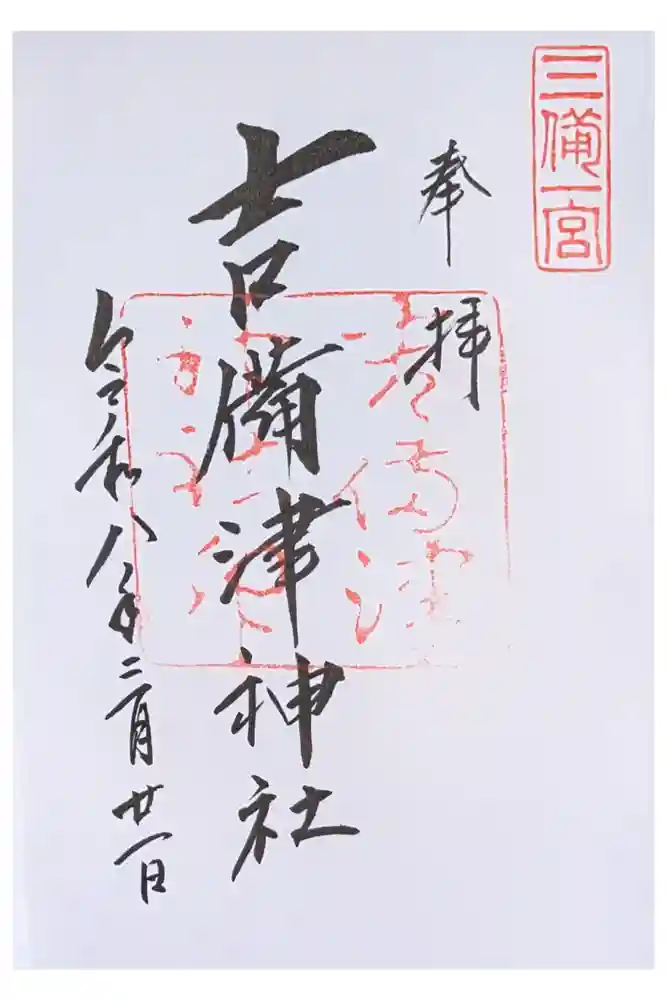 三備一宮
奉拝
吉備津
吉備津神社
令和八年二月廿一日